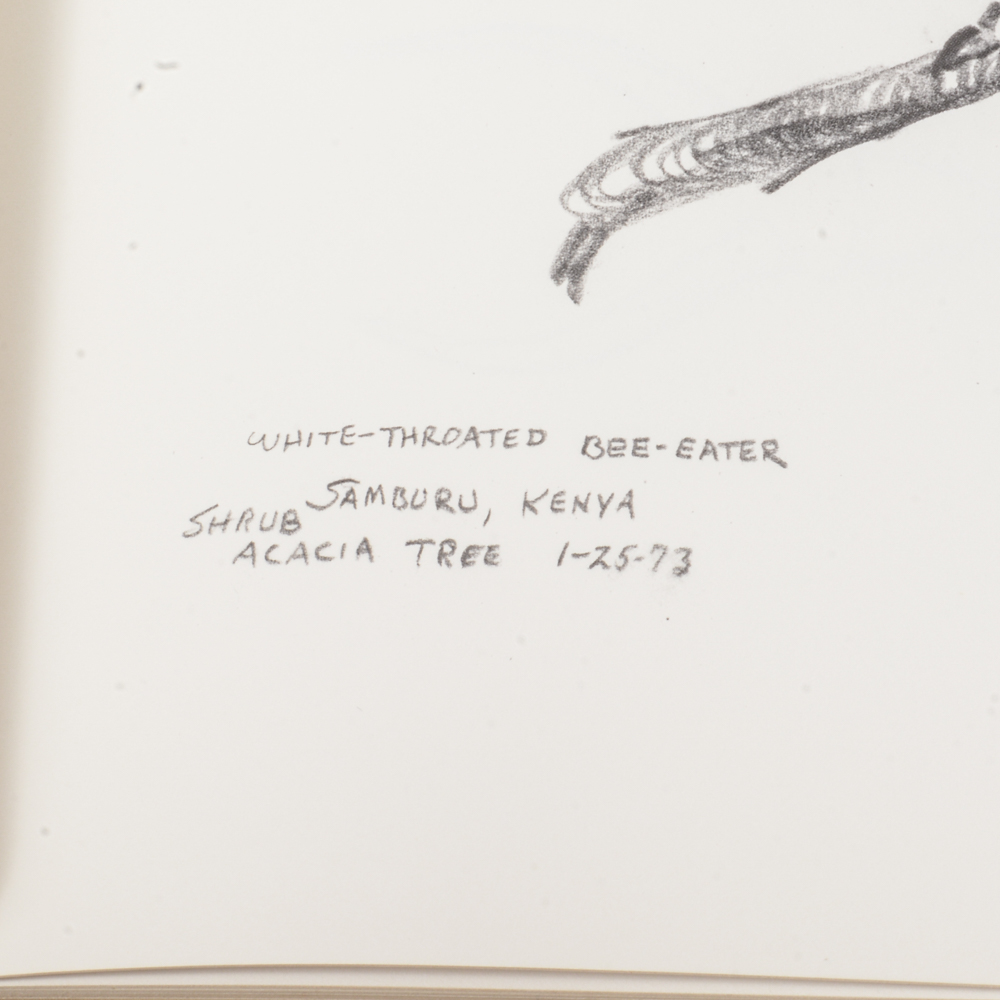 WHITE-THROATED BEE-EATER
SAMBURU, KENYA
SHRUB
ACACIA TREE 1-25-73